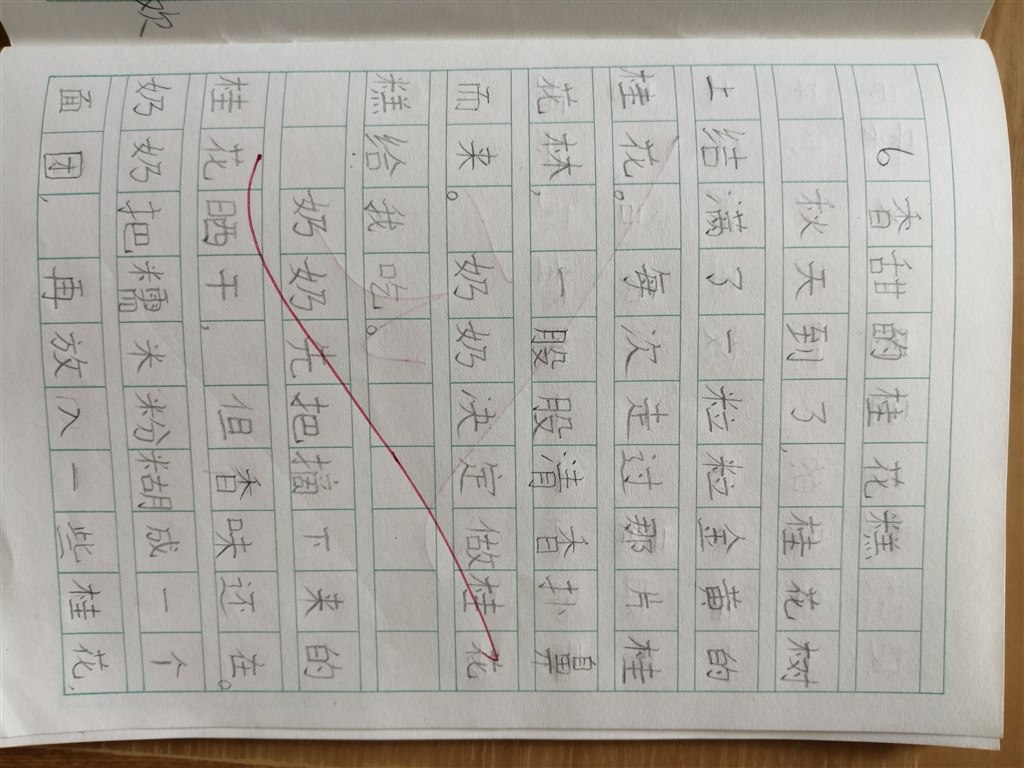 欢
6 香甜的桂花糕
秋天到了,桂花树
上结满了一粒粒金黄的
桂花。每次走过那片桂
花林,一股股清香扑鼻
而来。奶奶决定做桂花
糕给我吃。
奶奶先把摘下来的
桂花晒干,但香味还在。
奶奶把糯米粉糊成一个
面团,再放入一些桂花,